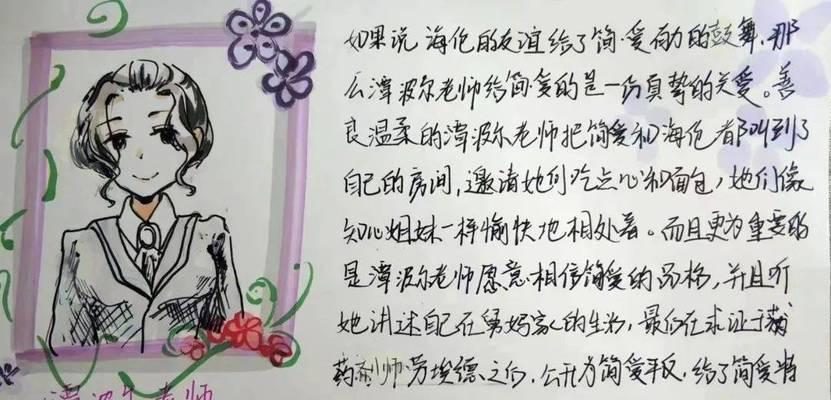 如果说海伦的友谊给了简·爱有力的鼓舞，那
么潭波尔老师给简·爱的是一份真挚的关爱。善
良温柔的潭波尔老师把简爱和海伦都叫到了
自己的房间，邀请她们吃点心和面包，她们像
知心姐妹一样愉快地相处着。而且更为重要的
是潭波尔老师愿意相信简爱的品格，并且听
她讲述自己在舅妈家的生活，最后在求证于
药剂师劳埃德之后，公开为简爱平反，给了简爱
潭波尔老师